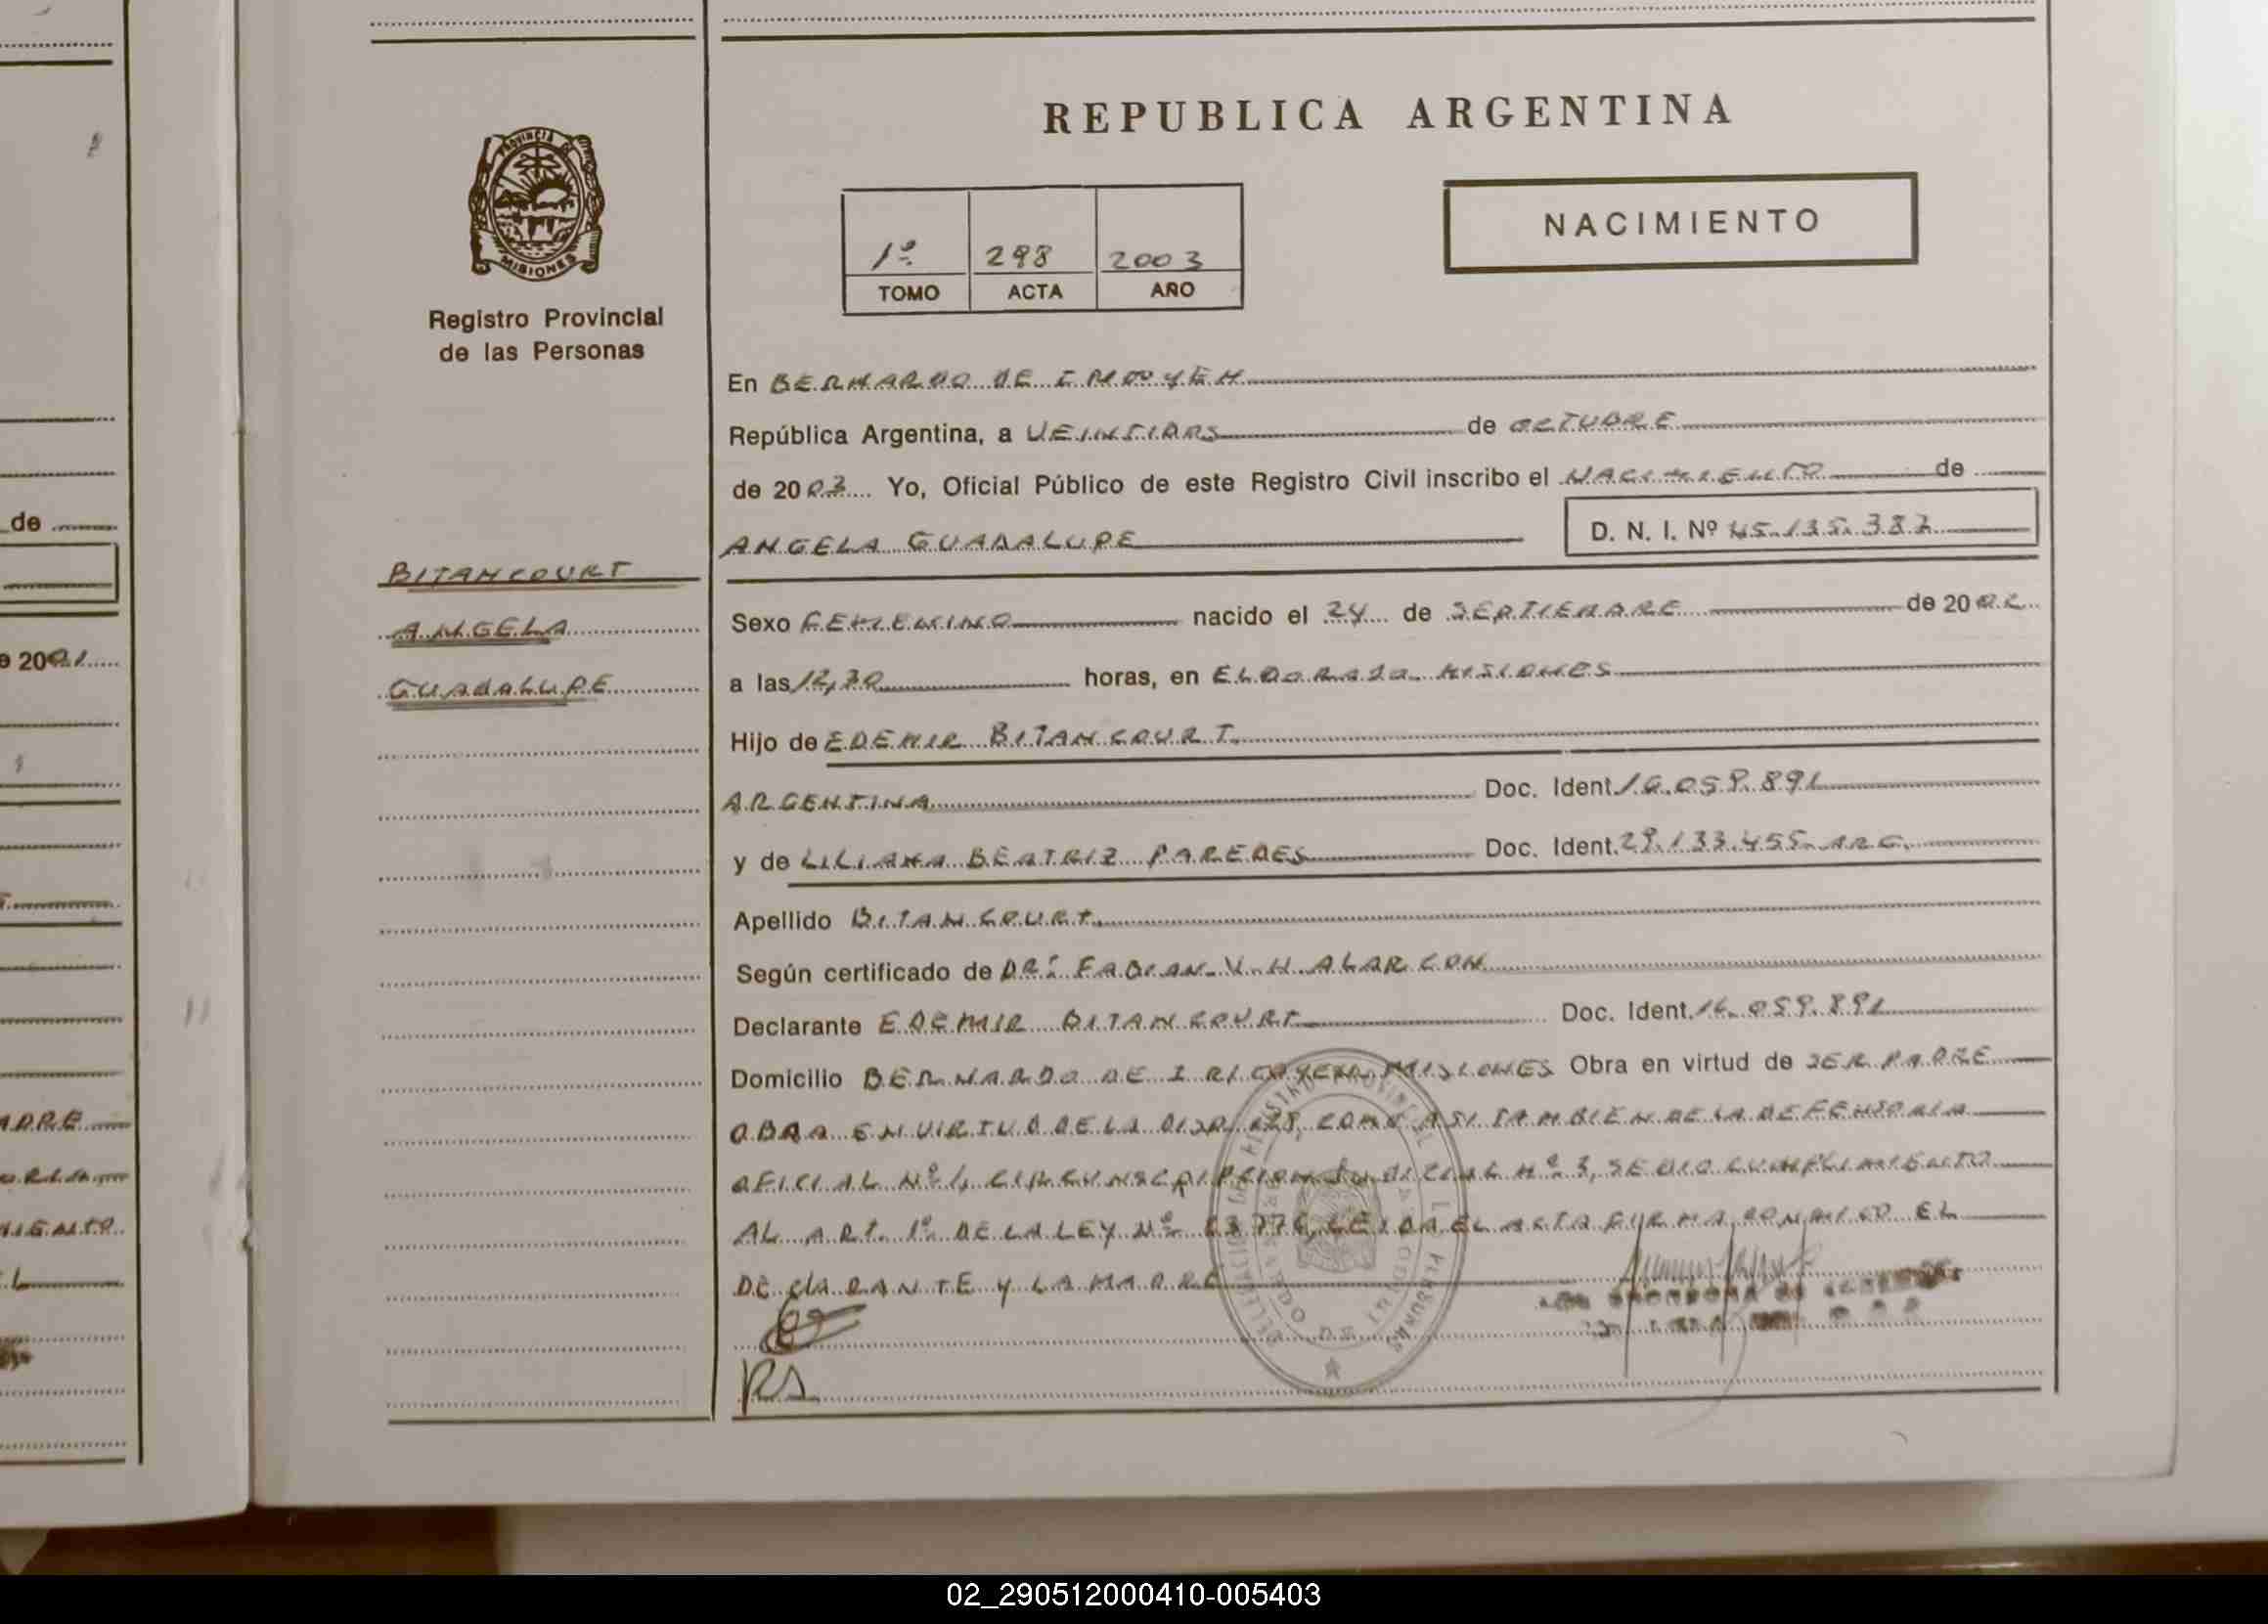 REPUBLICA ARGENTINA
PROVINCIA DE
MISIONES
Registro Provincial
de las Personas
1º 298 2003
TOMO ACTA AÑO
NACIMIENTO
En BERNARDO DE IRIGOYEN
República Argentina, a VEINTIDRS de OCTUBRE
de 2003 Yo, Oficial Público de este Registro Civil inscribo el NACIMIENTO de
ANGELA GUADALUPE D. N. I. Nº 45.135.383
BITANCOURT
ANGELA
GUADALUPE
Sexo FEMENINO nacido el 24 de SEPTIEMBRE de 2002
a las 12,30 horas, en ELDORADO MISIONES
Hijo de EDEMIR BITANCOURT
ARGENTINA Doc. Ident. 16.059.891
y de LILIANA BEATRIZ PAREDES Doc. Ident. 29.133.455 ARG.
Apellido BITANCOURT
Según certificado de DR. FABIAN V. H. ALARCON
Declarante EDEMIR BITANCOURT Doc. Ident. 16.059.891
Domicilio BERNARDO DE IRIGOYEN MISIONES Obra en virtud de SER PADRE
OBRA EN VIRTUD DE LA DISP. 228 COMO ASI TAMBIEN DE LA DEFENSORIA
OFICIAL Nº 1, CIRCUNSCRIPCION JUDICIAL Nº 3, SE DIO CUMPLIMIENTO
AL ART. 1º DE LA LEY Nº 23776, LEIDA EL ACTA FIRMA CONMIGO EL
DECLARANTE Y LA MADRE
de
de 2001
02_290512000410-005403